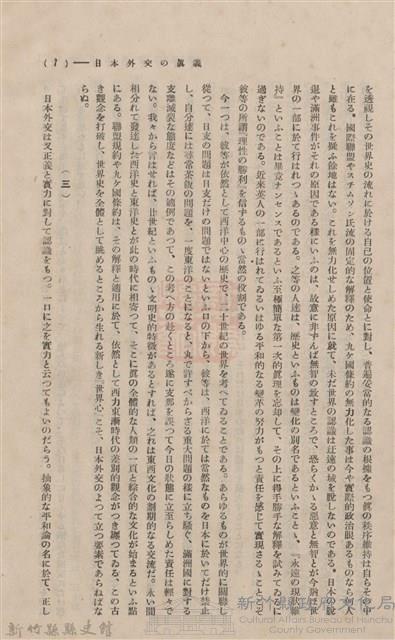 (7)——日本外交の眞義
を透視しその世界史の流れに於ける自己の位置と使命とに對し、普遍妥當的なる認識の根據をもつ眞の秩序維持は自らその中
に在る。國際聯盟やスチムソン氏流の固定的な解釋のため、九ケ國條約の無力化した事は今や實際的政治眼あるものなら何人
と雖もこれを疑ふ餘地はない。これを無力化せしめた原因に就て、未だ世界の認識は迂遠の域を脫しないのである。日本の脫
退や滿洲事件がそれの原因である樣にいふのは、故意に非ずんば無智の故するところで、恐らくかゝる惡意と無智とが今尙世
界の一部に於て行はれつゝあるのである。之等の人達は、歷史といふものは變化の別名であるといふことゝ、『永遠の現狀維
持』といふことは凡そナンセンスであるといふ至極簡單な第一次的眞理を忘却して、その上に得手勝手な解釋を試みてゐるに
過ぎないのである。近來英人の一部に行はれてゐるいはゆる平和的なる變革の努力がもつと責任を感じて實現さるゝことこそ
彼等の所謂『理性の勝利』を信ずるものゝ當然の役割である。
今一つは、彼等が依然として西洋中心の歷史で、二十世紀の世界を考へてゐることである。あらゆるものが世界的に關聯し
從つて、日支の問題は日支だけの問題ではないといふ口の下から、彼等は、西洋に於ては當然なものを日本に於いてだけ禁止
し、自分達には尋常茶飯の問題を、一度東洋のことになると、丸で許すべからざる重大問題の樣に立ち騷ぐ、滿洲國に對する
支離滅裂な態度などはその適例であつて、この考へ方の赴くところ遂に支那を誤つて今日の狀態に立至らしめた責任は輕々で
ない。我々から言はせれば、廿世紀といふものゝ文明史的特徵があるとすれば、之れは東西文化の劃期的なる交流、永い間
相分れて發達した西洋史と東洋史とが此の時代に相寄つて、そこに眞の全體的な人類の一頁と綜合的な文化が始まるといふ點
にある。聯盟規約や九ケ國條約は、その解釋と適用に於て、依然として西力東漸時代の差別的觀念がつき纏つてゐる、この古
き觀念を打破し、世界史を全體として眺めるところから生れる新しき『世界心』こそ、日本外交のよつて立つ要素であらねばな
らぬ。
(三)
日本外交は又正義と實力に對して認識をもつ。一口に之を實力と云つてもよいのだらう。抽象的な平和論の名に於て、正し
新竹縣政府文化局
Cultural Affairs Bureau of Hsinchu
County Government
新竹縣縣史館